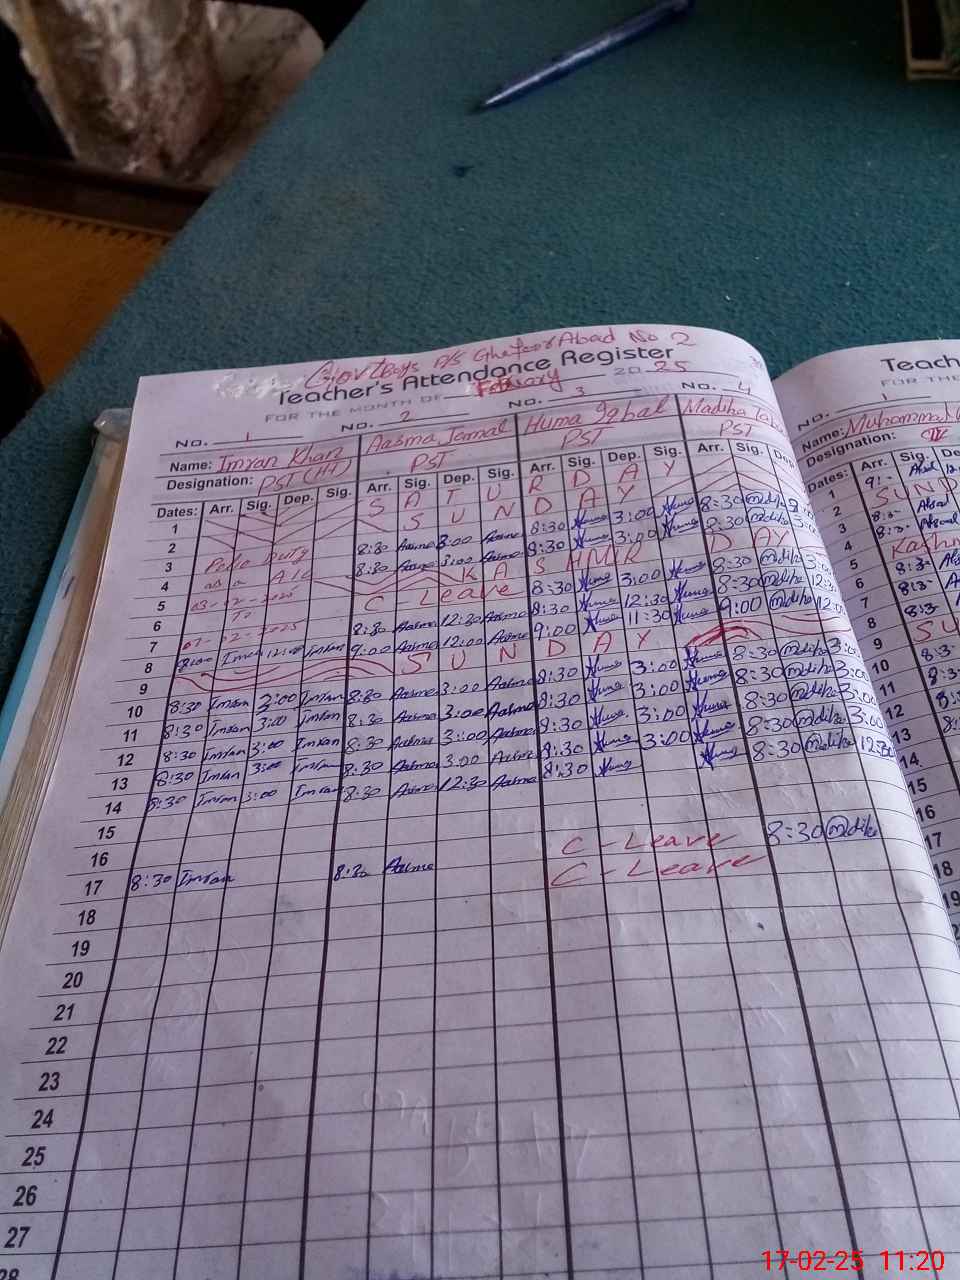 Govt Boys P/S Ghafoor Abad No 2
Teacher's Attendance Register
FOR THE MONTH OF February 20 25
No. 1 No. 2 No. 3 No. 4
Name: Imran Khan Aasma Jamal Huma Iqbal Madiha
Designation: PST (HT) PST PST PST
Dates: Arr. Sig. Dep. Sig. Arr. Sig. Dep. Sig. Arr. Sig. Dep. Sig. Arr. Sig. Dep
1 S A T U R D A Y
2 S U N D A Y
3 Polio Duty 8:30 Aasma 3:00 Aasma 8:30 Huma 3:00 Huma 8:30 Madiha
4 as a AIC 8:30 Aasma 3:00 Aasma 8:30 Huma 3:00 Huma 8:30 Madiha
5 03-02-2025 K A S H M I R D A Y
6 To C - Leave 8:30 Huma 3:00 Huma 8:30 Madiha 3:00
7 07-02-2025 8:30 Aasma 12:30 Aasma 8:30 Huma 12:30 Huma 8:30 Madiha 12:3
8 8:00 Imran 12:00 Imran 9:00 Aasma 12:00 Aasma 9:00 Huma 11:30 Huma 9:00 Madiha 12:00
9 S U N D A Y
10 8:30 Imran 3:00 Imran 8:30 Aasma 3:00 Aasma 8:30 Huma 3:00 Huma 8:30 Madiha 3:00
11 8:30 Imran 3:00 Imran 8:30 Aasma 3:00 Aasma 8:30 Huma 3:00 Huma 8:30 Madiha 3:00
12 8:30 Imran 3:00 Imran 8:30 Aasma 3:00 Aasma 8:30 Huma 3:00 Huma 8:30 Madiha 3:00
13 8:30 Imran 3:00 Imran 8:30 Aasma 3:00 Aasma 8:30 Huma 3:00 Huma 8:30 Madiha 3:00
14 8:30 Imran 3:00 Imran 8:30 Aasma 12:30 Aasma 8:30 Huma Huma 8:30 Madiha 12:30
15
16 C - Leave
17 8:30 Imran 8:30 Aasma C - Leave 8:30 Madiha
18
19
20
21
22
23
24
25
26
27
28
Teach
FOR THE
No. 1
Name: Muhammad
Designation:
Dates: Arr. Sig. De
1
2 SUND
3
4
5 Kashm
6 8:3
7 8:3
8 8:3
9 SU
10 8:3
11
12
13
14
15
16
17
18
19
17-02-25 11:20